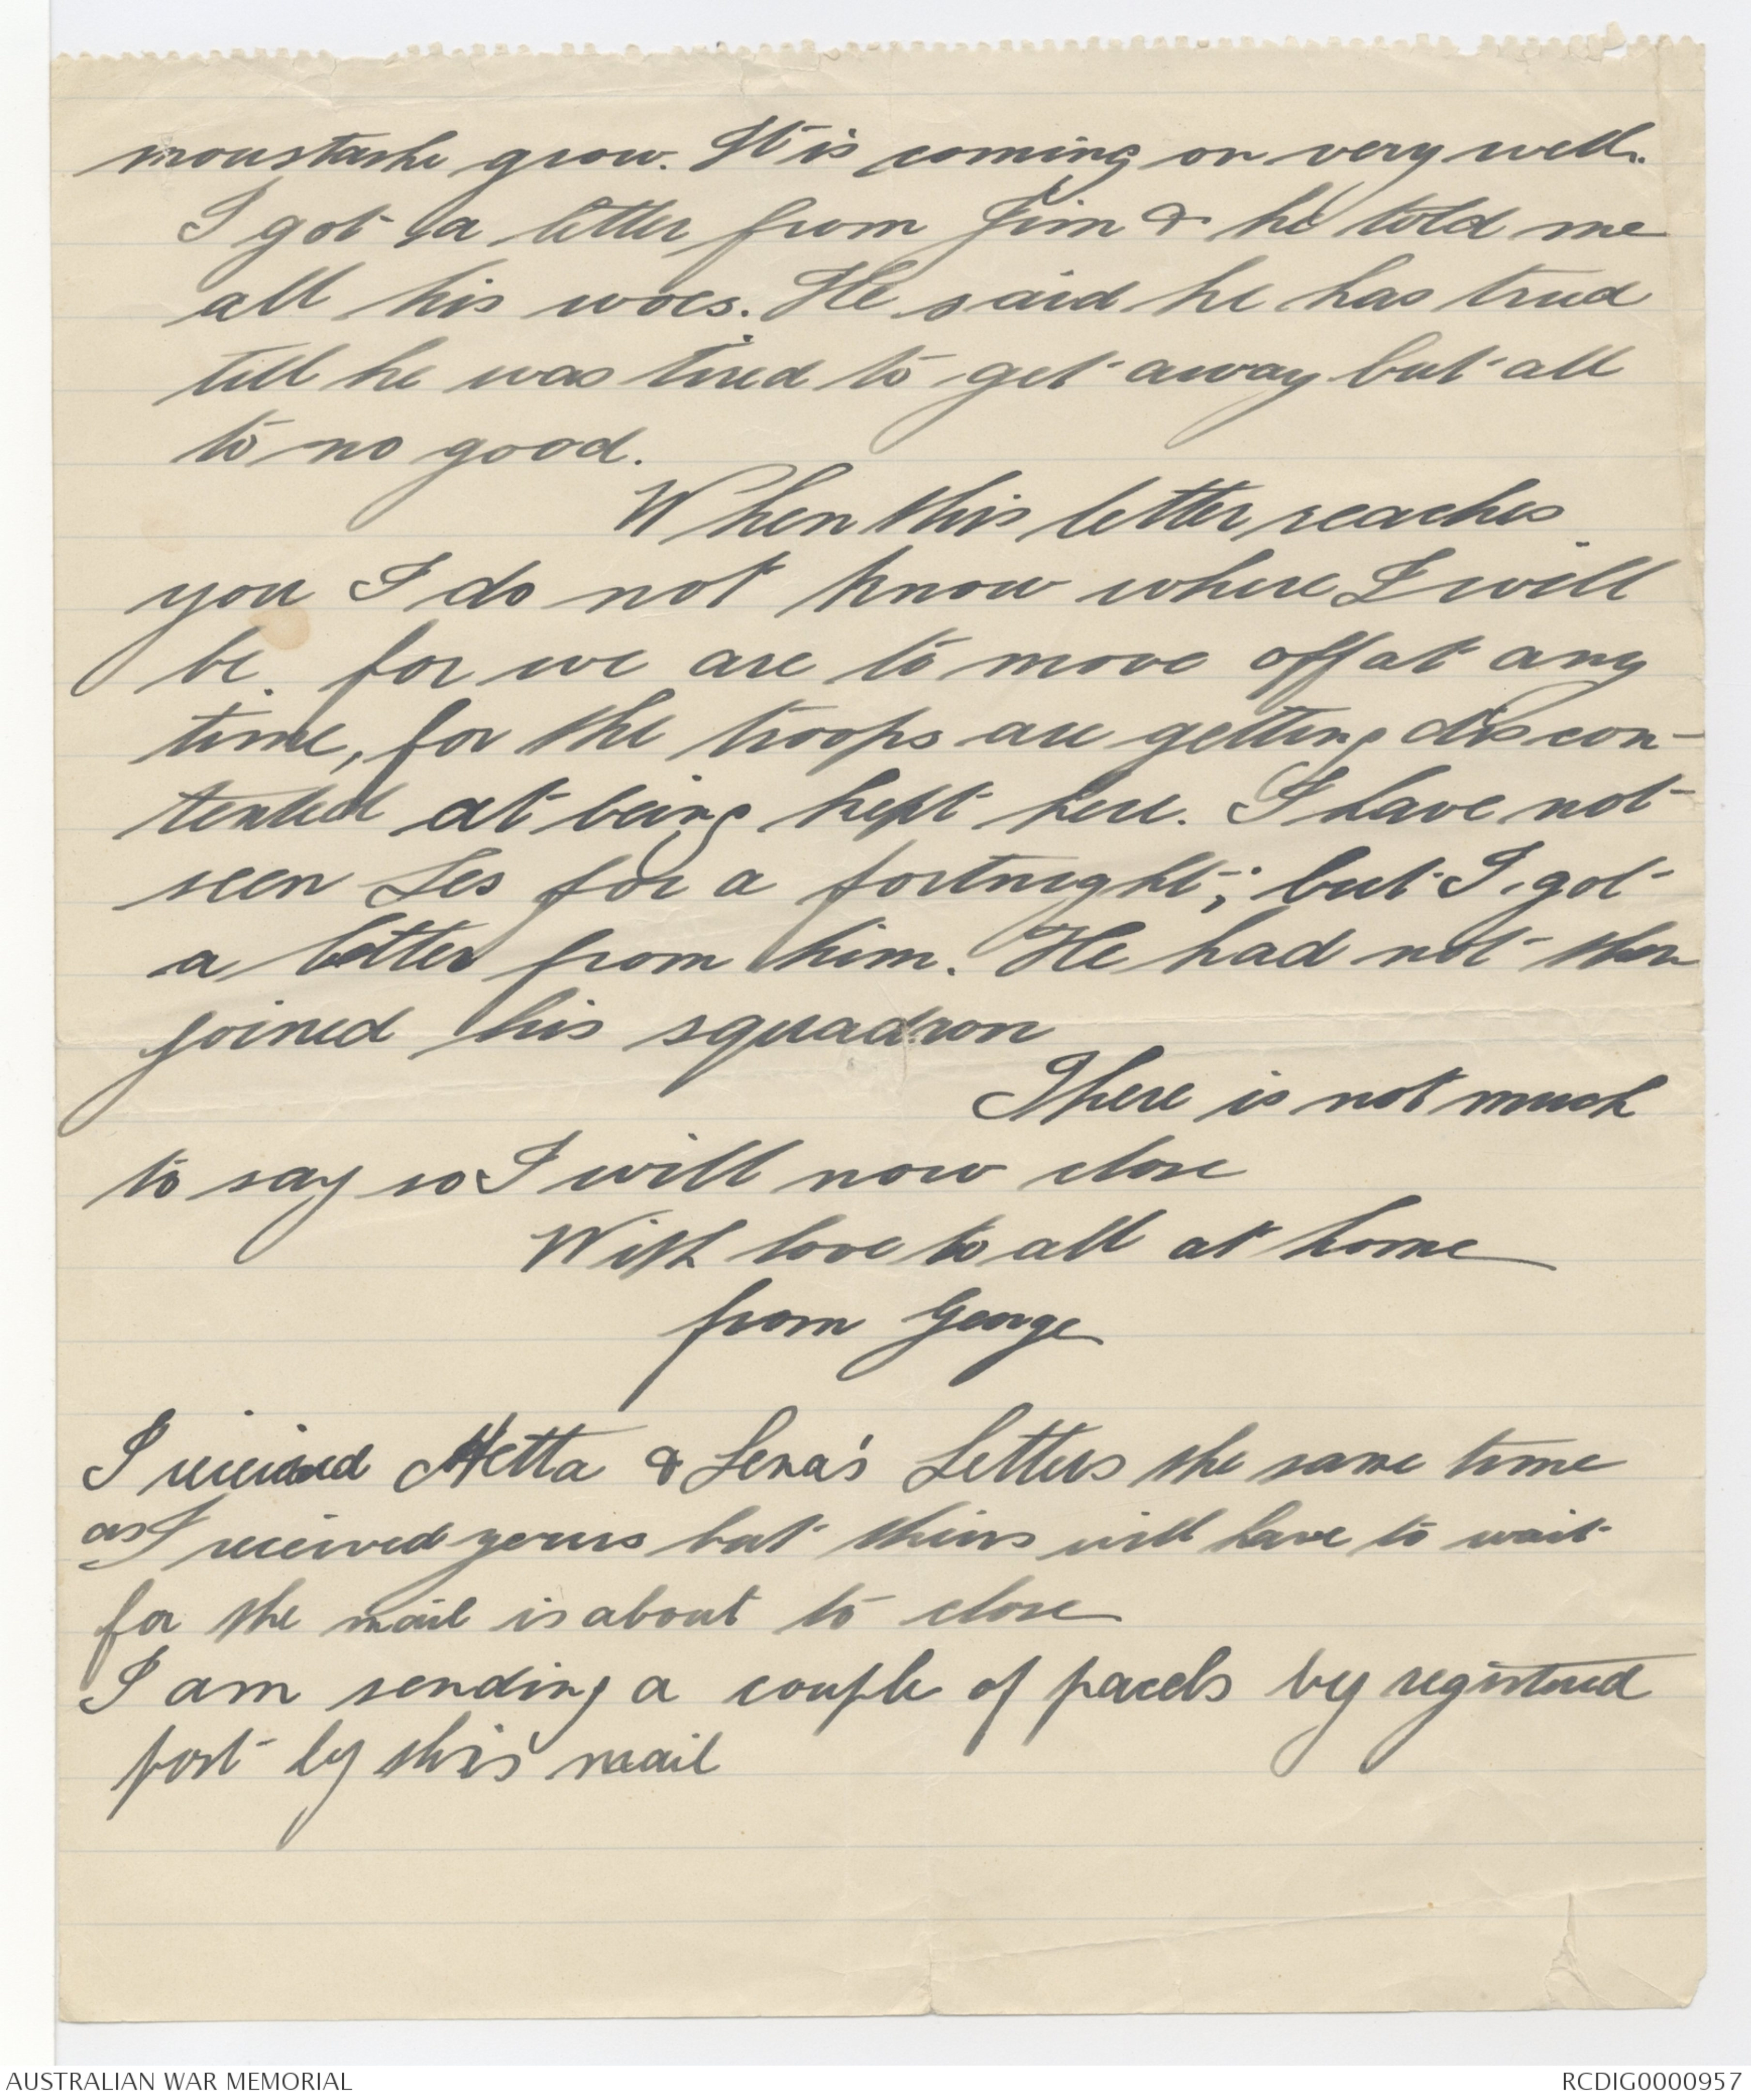 moustache grow. It is coming on very well.
I got a letter from Jim & he told me
all his woes. He said he has tried
till he was tired to get away but all
to no good.
When this letter reaches
you I do not know where I will
be. for we are to move off at any
time, for the troops are getting discon-
tented at being kept here. I have not
seen Les for a fortnight; but I got
a letter from him. He had not then
joined his squadron
There is not much
to say so I will now close
With love to all at home
from George
I received Hetta & Lena's Letters the same time
as I received yours but theirs will have to wait
for the mail is about to close
I am sending a couple of parcels by registered
post by this mail
AUSTRALIAN WAR MEMORIAL
RCDIG0000957